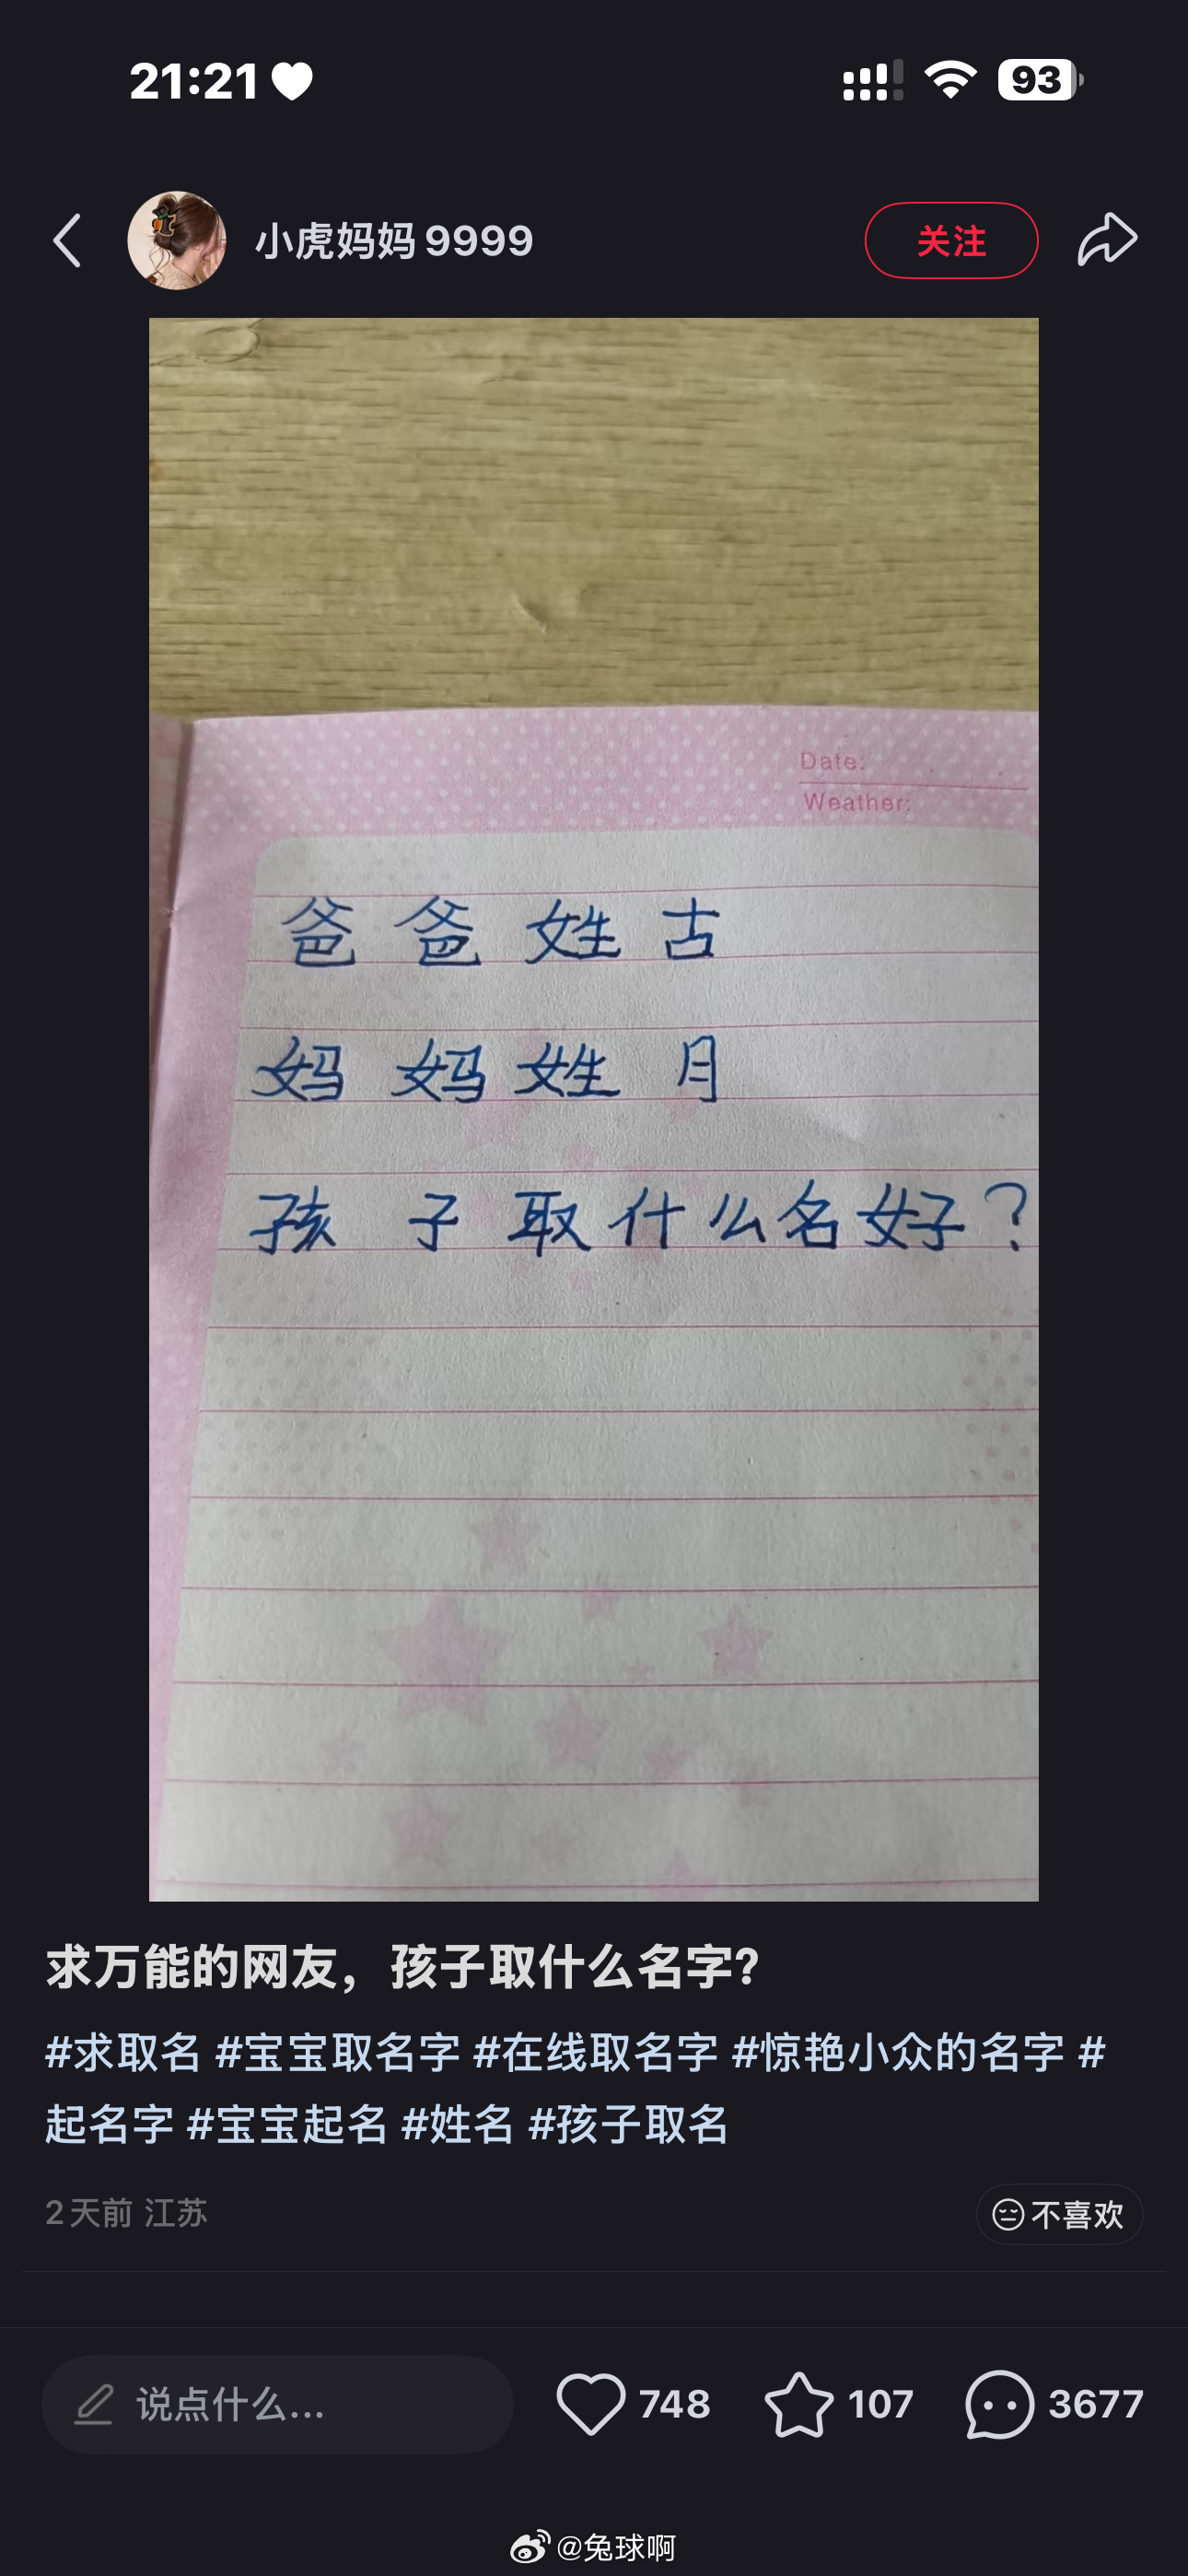 21:21
93
小虎妈妈9999
关注
Date:
Weather:
爸爸姓古
妈妈姓月
孩子取什么名好?
求万能的网友,孩子取什么名字?
#求取名 #宝宝取名字 #在线取名字 #惊艳小众的名字 #
起名字 #宝宝起名 #姓名 #孩子取名
2天前 江苏
不喜欢
说点什么...
748
107
3677
@兔球啊